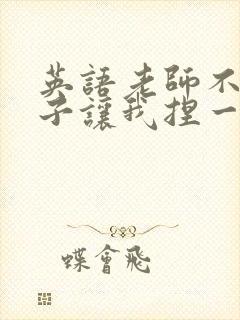 英語老師不
子讓我捏一
蝶會飛